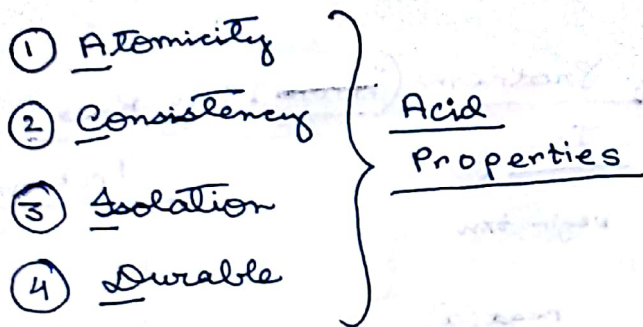 ① Atomicity
② Consistency
③ Isolation
④ Durable
Acid
Properties